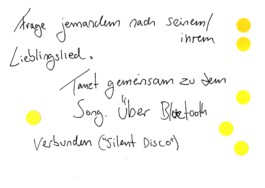 Frage jemandem nach seinem/
ihrem
Lieblingslied.
Tanzt gemeinsam zu dem
Song. Über Bluetooth
verbunden ("Silent Disco")